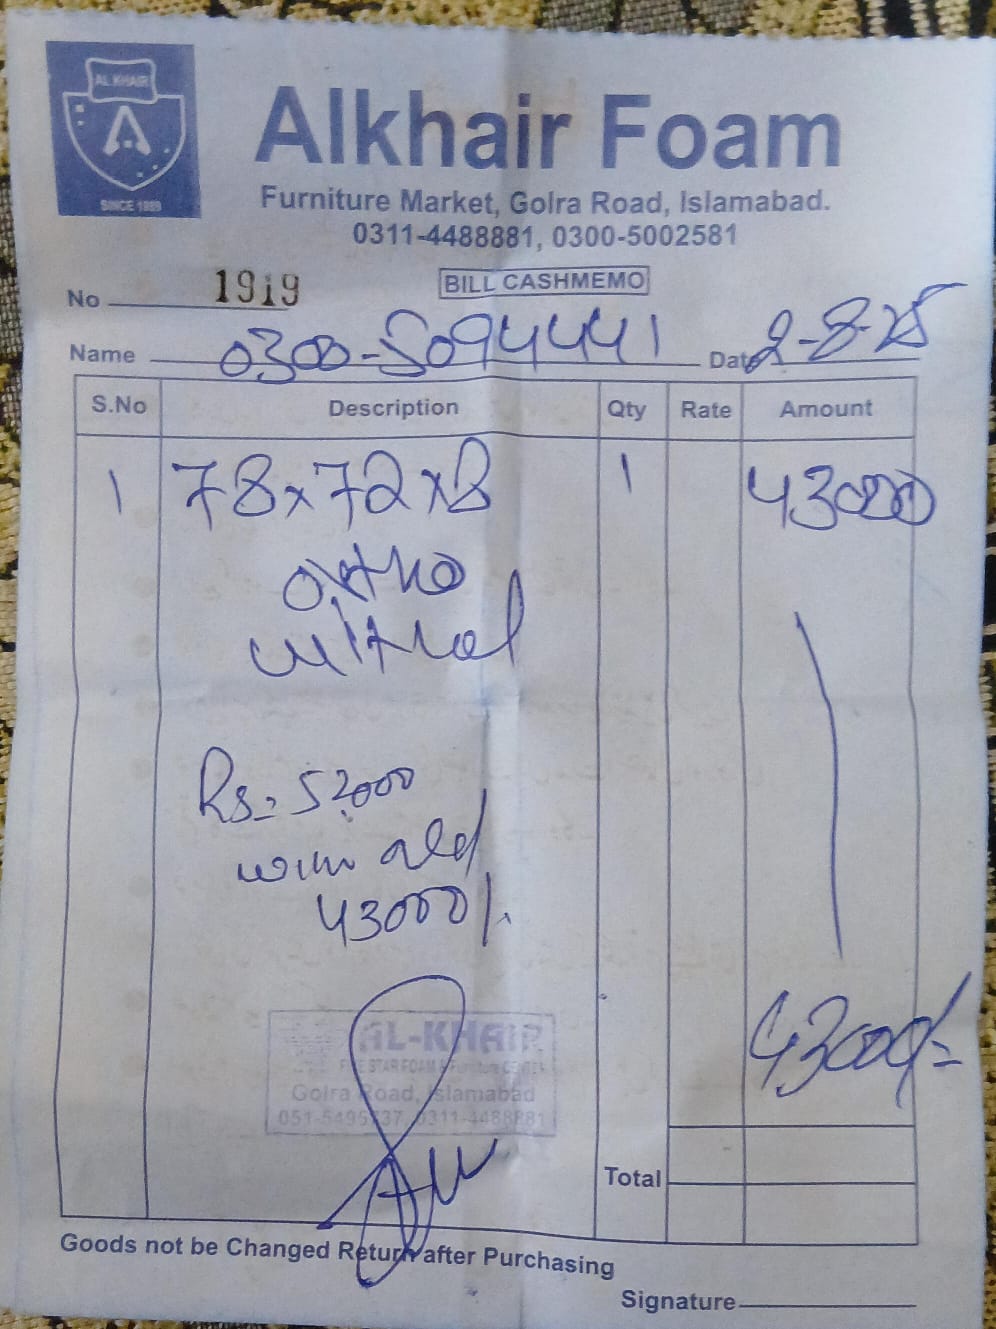 AL KHAIR
A
SINCE 1989
Alkhair Foam
Furniture Market, Golra Road, Islamabad.
0311-4488881, 0300-5002581
No 1919
BILL CASHMEMO
Name 0300-5094441 Date 2-8-25
S.No Description Qty Rate Amount
1 78x72x8 1 43000
ortho
Rs. 52000
43000/.
AL-KHAIR
FIVE STAR FOAM & Furniture CENTER
Golra Road, Islamabad
0311-4488881
43000/=
Total
Goods not be Changed Return after Purchasing
Signature